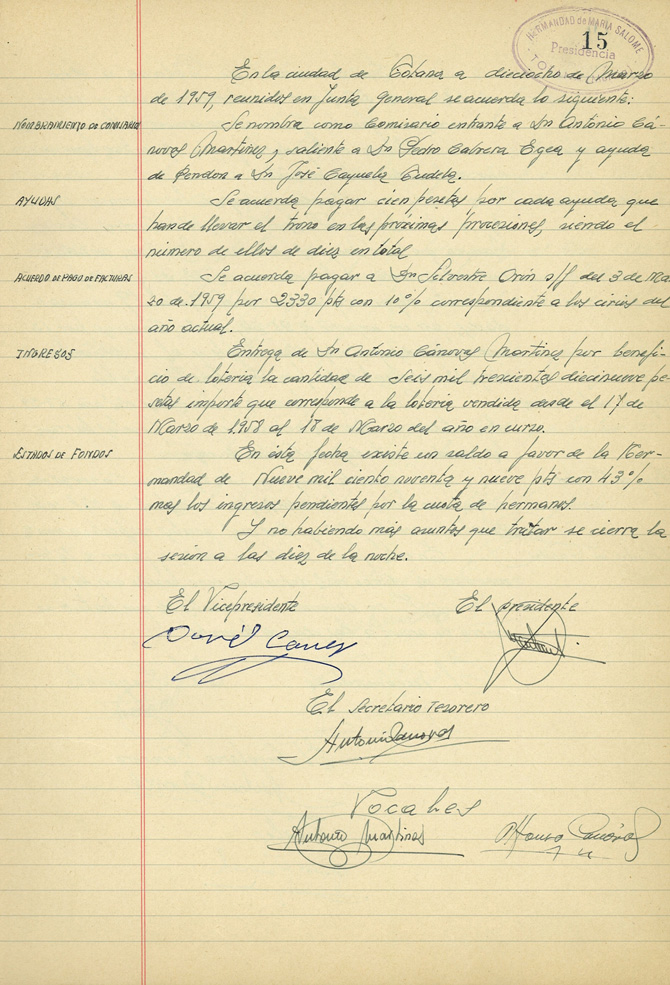 HERMANDAD de MARIA SALOME
15
Presidencia
En la ciudad de Totana a dieciocho de Marzo
de 1959, reunidos en Junta general se acuerda lo siguiente:
NOMBRAMIENTO DE COMISARIO
Se nombra como Comisario entrante a Dn Antonio Cá-
novas Martinez, saliente a Dn Pedro Cabrera Egea y ayuda
de Pendon a Dn José Cayuela Cudela.
AYUDAS
Se acuerda pagar cien pesetas por cada ayuda que
han de llevar el trono en las próximas procesiones, siendo el
número de ellos de diez en total
ACUERDO DE PAGO DE FACTURAS
Se acuerda pagar a Dn Silvestre s/f del 3 de Mar-
zo de 1959 por 2330 pts con 10% correspondiente a los cirios del
año actual.
INGRESOS
Entrega de Dn Antonio Cánovas Martinez por benefi-
cio de loteria la cantidad de Seis mil trescientas diecinueve pe-
setas importe que corresponde a la loteria vendida desde el 17 de
Marzo de 1958 al 18 de Marzo del año en curso.
ESTADOS DE FONDOS
En ésta fecha existe un saldo a favor de la Her-
mandad de Nueve mil ciento noventa y nueve pts con 43%
mas los ingresos pendientes por la cuota de hermanos.
Y no habiendo más asuntos que tratar se cierra la
sesión a las diez de la noche.
El Vicepresidente El presidente
David Canov
El Secretario Tesorero
Antonio Canovas
Vocales
Antonio Martinez Alfonso Cánovas